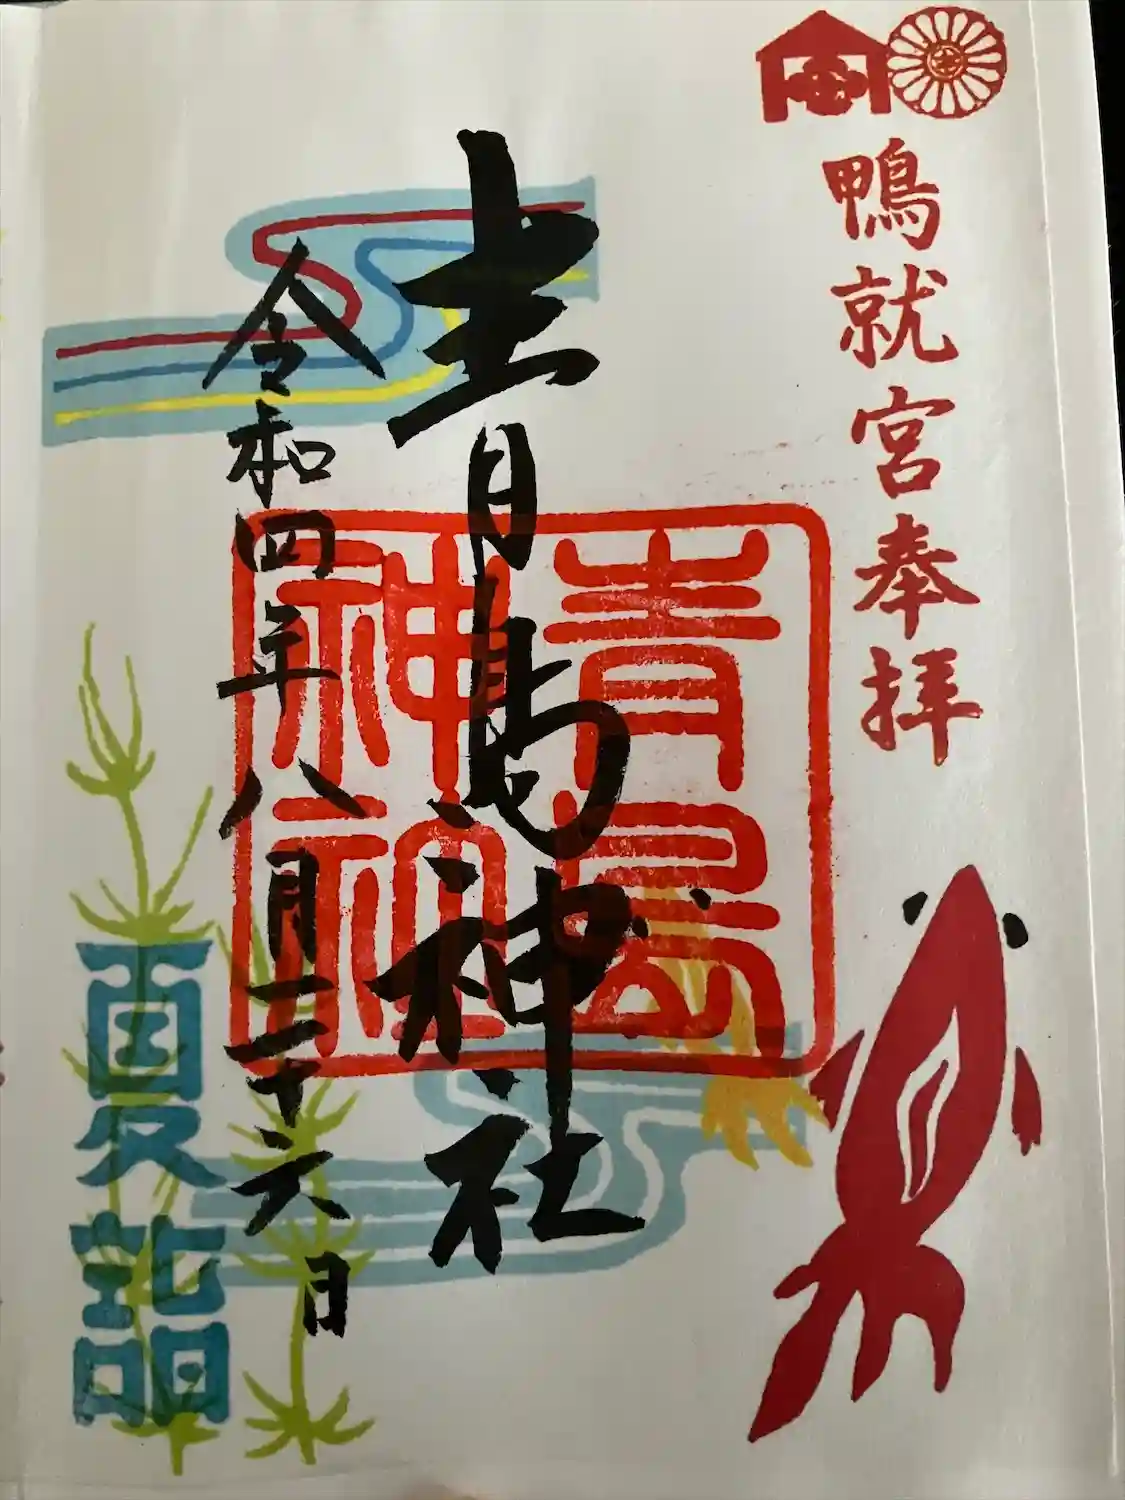 鴨就宮奉拝
青島神社
青島
神社
令和四年八月二十六日
夏詣